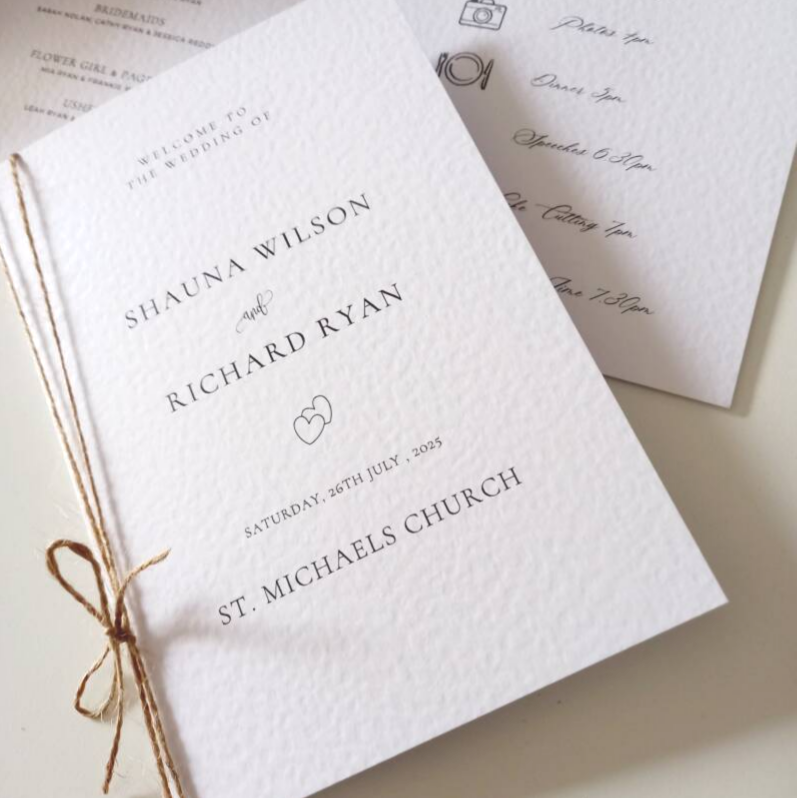 BRIDEMAIDS
SARAH NOLAN, CATHY RYAN & JESSICA REDD
FLOWER GIRL & PAGE
MIA RYAN & FRANKIE
USHE
LEAH RYAN &
WELCOME TO
THE WEDDING OF
SHAUNA WILSON
and
RICHARD RYAN
SATURDAY, 26TH JULY , 2025
ST. MICHAELS CHURCH
Photos 1pm
Dinner 5pm
Speeches 6.30pm
Cutting 7pm
Time 7.30pm